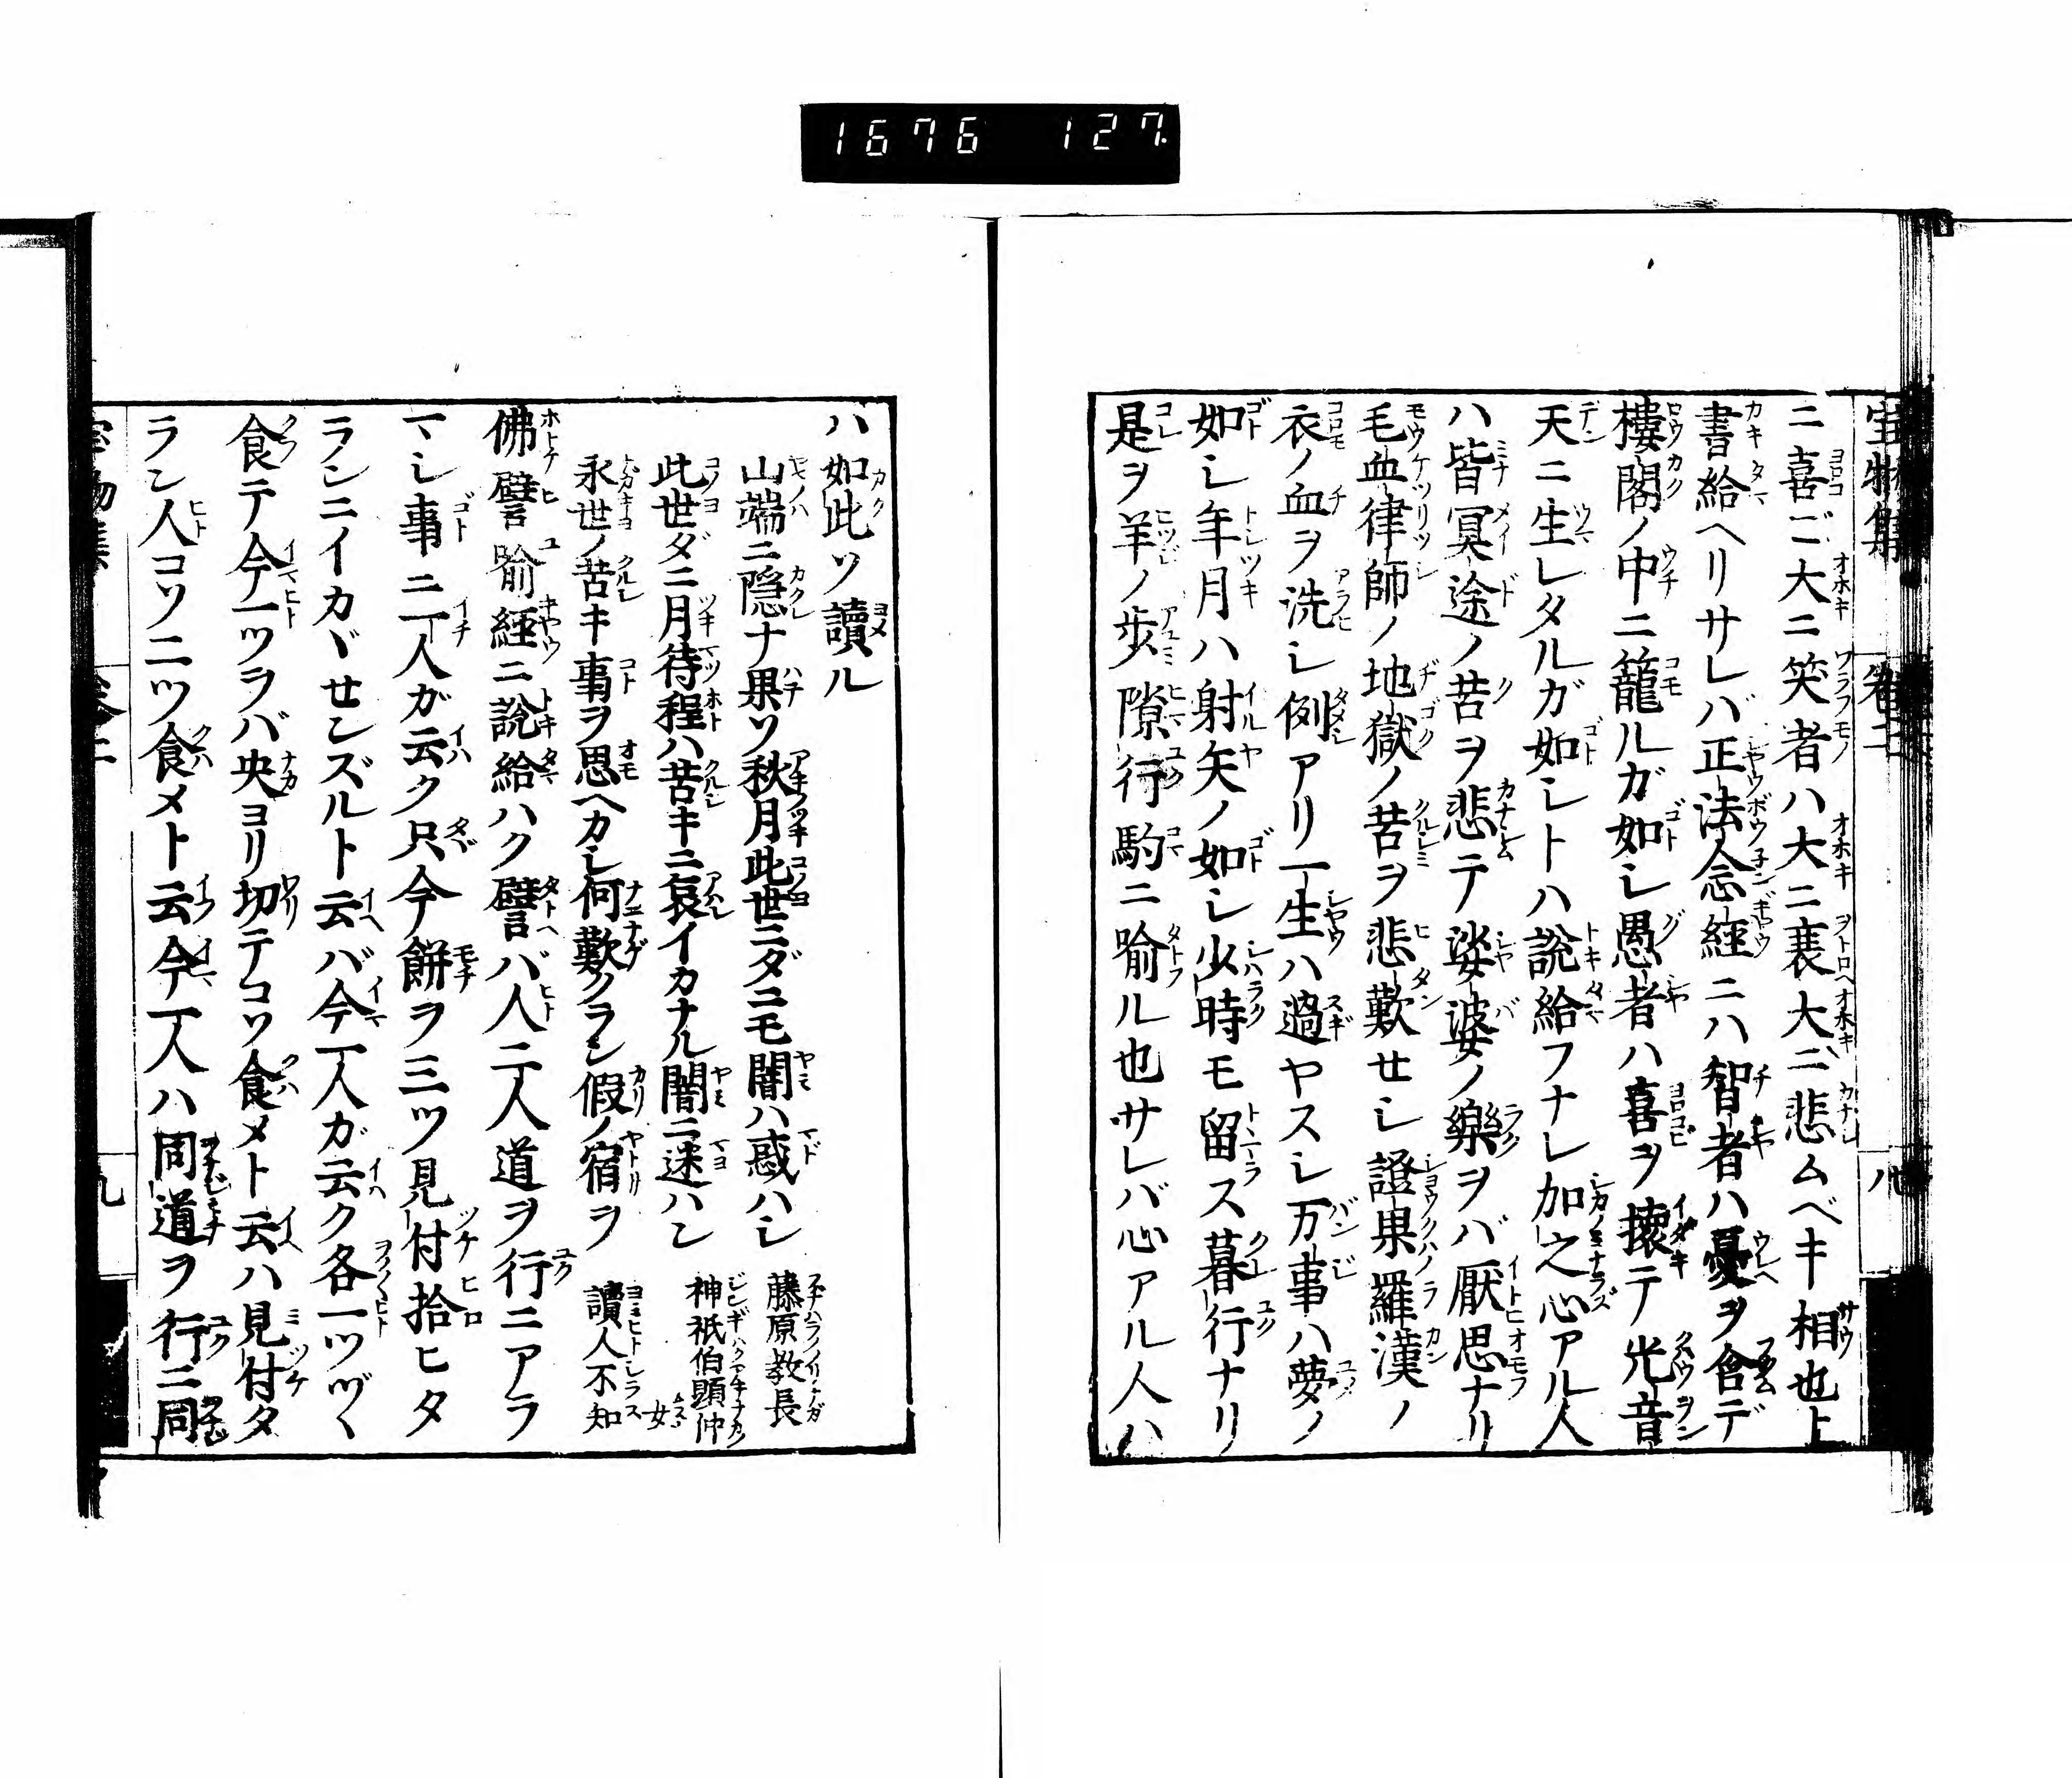 1676 127
宝物集 卷二 八
ニ喜ビ大ニ笑者ハ大ニ衰大ニ悲ムベキ相也ト
書給ヘリサレバ正法念經ニハ智者ハ憂ヲ含デ
樓閣ノ中ニ籠ルガ如シ愚者ハ喜ヲ懐テ光音
天ニ生レタルガ如シトハ説給フナレ加之心アル人
ハ皆冥途ノ苦ヲ悲テ娑婆ノ樂ヲバ厭思ナリ
毛血律師ノ地獄ノ苦ヲ悲歎セシ證果羅漢ノ
衣ノ血ヲ洗シ例アリ一生ハ過ヤスシ万事ハ夢ノ
如シ年月ハ射矢ノ如シ少時モ留ス暮行ナリ
是ヲ羊ノ歩隙行駒ニ喻ル也サレバ心アル人ハ
ハ如此ソ讀ル
山端ニ隠ナ果ソ秋月此世ニダニモ闇ハ惑ハシ 藤原教長
此世ダニ月待程ハ苦キニ哀イカナル闇ニ迷ハン 神祇伯顕仲女
永世ノ苦キ事ヲ思ヘカシ何歎クラン假ノ宿ヲ 讀人不知
佛譬喻經ニ説給ハク譬バ人二人道ヲ行ニアラ
マシ事ニ一人ガ云ク只今餅ヲ三ツ見付拾ヒタ
ランニイカヾせンズルト云バ今一人ガ云ク各一ツヅヽ
食テ今一ツラバ央ヨリ切テコソ食メト云ハ見付タ
ラン人コソ二ツ食メト云今一人ハ同道ヲ行ニ同
九